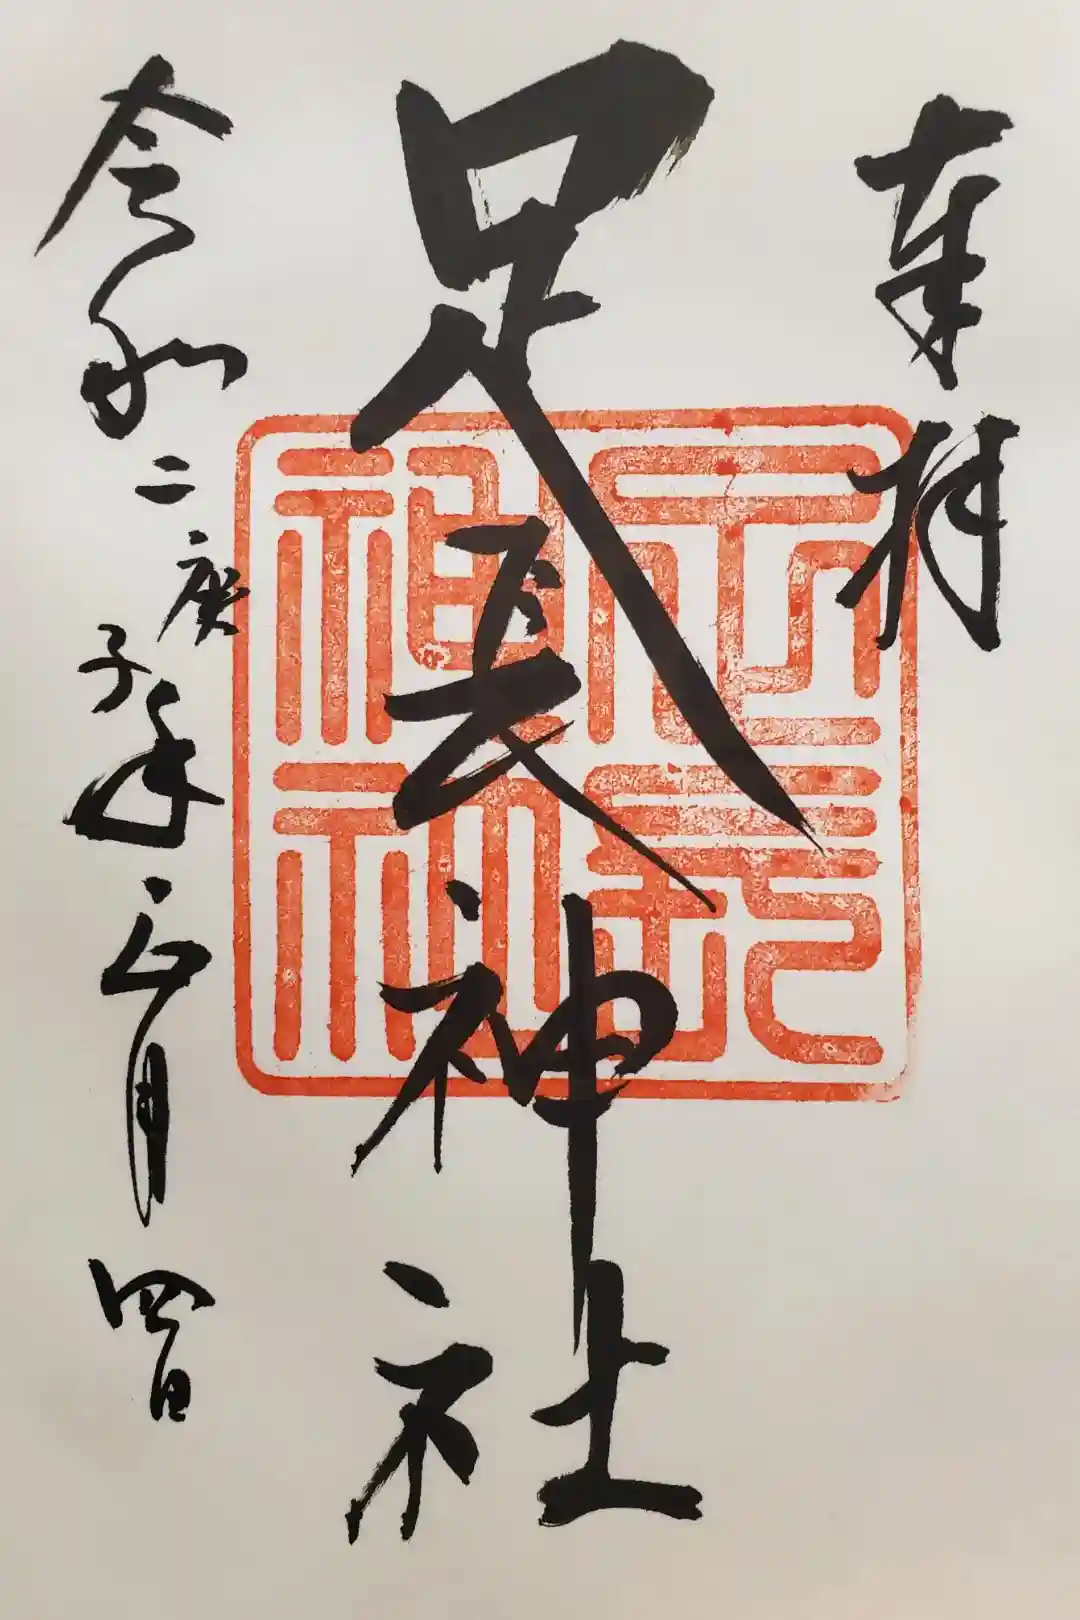 奉拝
足長神社
令和二庚子年正月四日
足長
神社